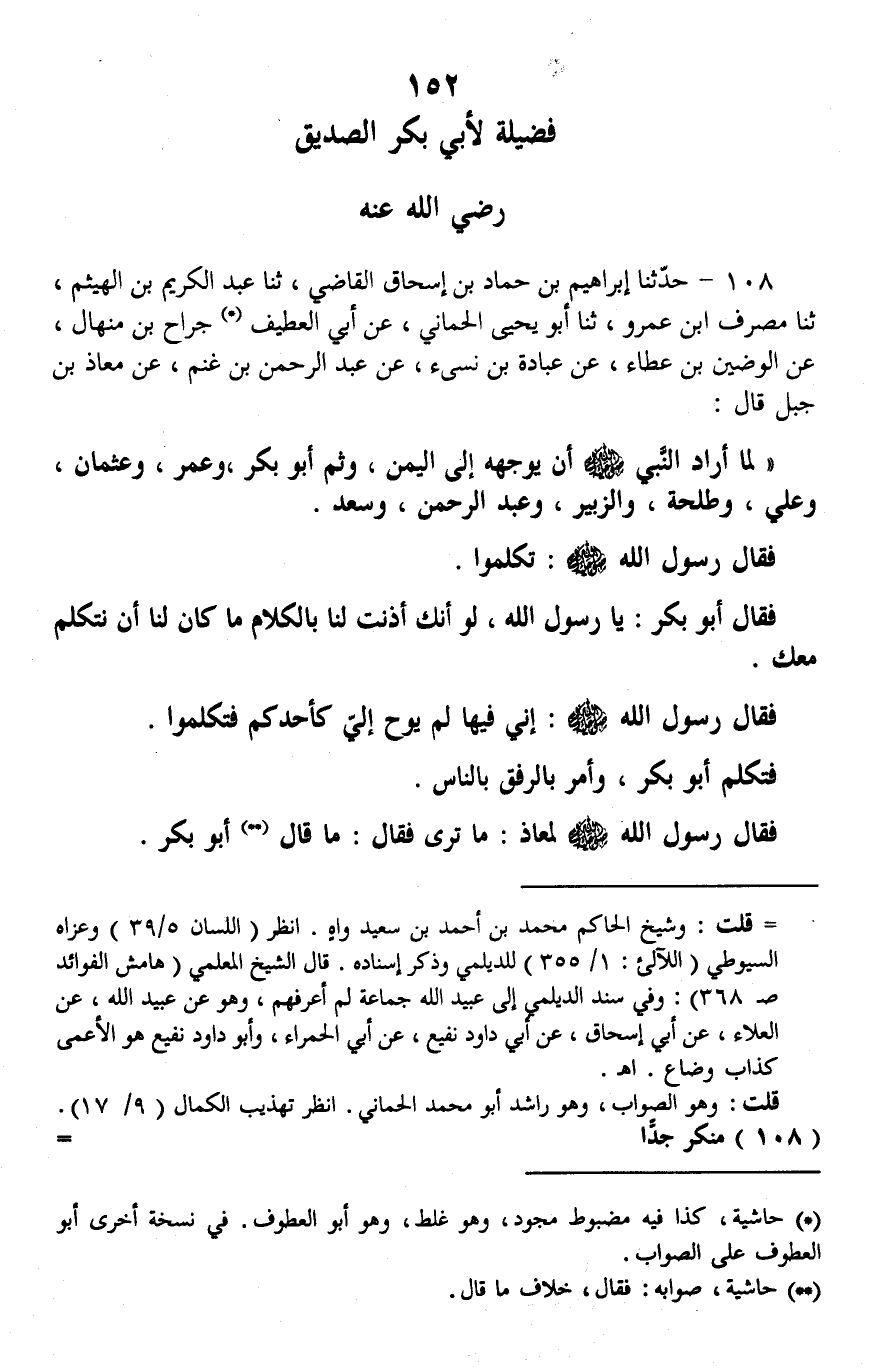 ١٥٢
فضيلة لأبي بكر الصديق
رضي الله عنه
١٠٨ – حدّثنا إبراهيم بن حماد بن إسحاق القاضي ، ثنا عبد الكريم بن الهيثم ،
ثنا مصرف ابن عمرو ، ثنا أبو يحيى الحماني ، عن أبي العطيف (*) جراح بن منهال ،
عن الوضين بن عطاء ، عن عبادة بن نسىء ، عن عبد الرحمن بن غنم ، عن معاذ بن
جبل قال :
« لما أراد النَّبي ﷺ أن يوجهه إلى اليمن ، وثم أبو بكر ،وعمر ، وعثمان ،
وعلي ، وطلحة ، والزبير ، وعبد الرحمن ، وسعد .
فقال رسول الله ﷺ : تكلموا .
فقال أبو بكر : يا رسول الله ، لو أنك أذنت لنا بالكلام ما كان لنا أن نتكلم
معك .
فقال رسول الله ﷺ : إني فيها لم يوح إليّ كأحدكم فتكلموا .
فتكلم أبو بكر ، وأمر بالرفق بالناس .
فقال رسول الله ﷺ لمعاذ : ما ترى فقال : ما قال (**) أبو بكر .
= قلت : وشيخ الحاكم محمد بن أحمد بن سعيد واهٍ . انظر ( اللسان ٣٩/٥ ) وعزاه
السيوطي ( اللآلئ : ١/ ٣٥٥ ) للديلمي وذكر إسناده . قال الشيخ المعلمي ( هامش الفوائد
صـ ٣٦٨) : وفي سند الديلمي إلى عبيد الله جماعة لم أعرفهم ، وهو عن عبيد الله ، عن
العلاء ، عن أبي إسحاق ، عن أبي داود نفيع ، عن أبي الحمراء ، وأبو داود نفيع هو الأعمى
كذاب وضاع . اهـ .
قلت : وهو الصواب ، وهو راشد أبو محمد الحماني . انظر تهذيب الكمال ( ٩/ ١٧) .
( ١٠٨ ) منكر جدًّا =
(*) حاشية ، كذا فيه مضبوط مجود ، وهو غلط ، وهو أبو العطوف . في نسخة أخرى أبو
العطوف على الصواب .
(**) حاشية ، صوابه : فقال ، خلاف ما قال .